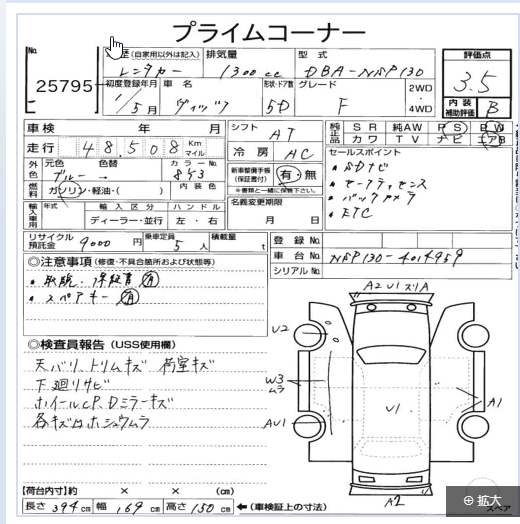 プライムコーナー
No. 25795
歴 (自家用以外は記入) レンタカー
排気量 1300cc
型式 DBA-NSP130
評価点 3.5
内装補助評価 B
初度登録年月 年 5月
車名 ヴィッツ
形状・ドア数 5D
グレード F
2WD
4WD
車検 年 月
シフト AT
純正品 SR 純AW PS PW
カワ TV ナビ エアB
走行 48,508 Km マイル
冷房 AC
セールスポイント
・SDナビ
・バックカメラ
・ETC
外色 元色 ブルー 色替→ カラーNo. 8S3
新車整備手帳(保証書付) 有・無
※書類と一緒に保管下さい。
燃料 ガソリン・軽油・( ) 内装色
名義変更期限 月 日
輸入車用 年式 輸入区分 ハンドル
ディーラー・並行 左・右
リサイクル預託金 9000円
乗車定員 5人
積載量 t
登録No.
車台No. NSP130-4014959
シリアルNo.
◎注意事項 (修復・不具合箇所および状態等)
・取説、保証書 有
・スペアキー 有
◎検査員報告 (USS使用欄)
天バリ、トリムキズ 荷室キズ
下廻りサビ
ホイールCP、Dミラーキズ
各キズ ホシュウムラ
A2 U1 ズリA
U2
W3
ムラ
AU1
U1
A1
A2
スペア
【荷台内寸】約 × × (cm)
長さ 394cm 幅 169cm 高さ 150cm ←(車検証上の寸法)
拡大